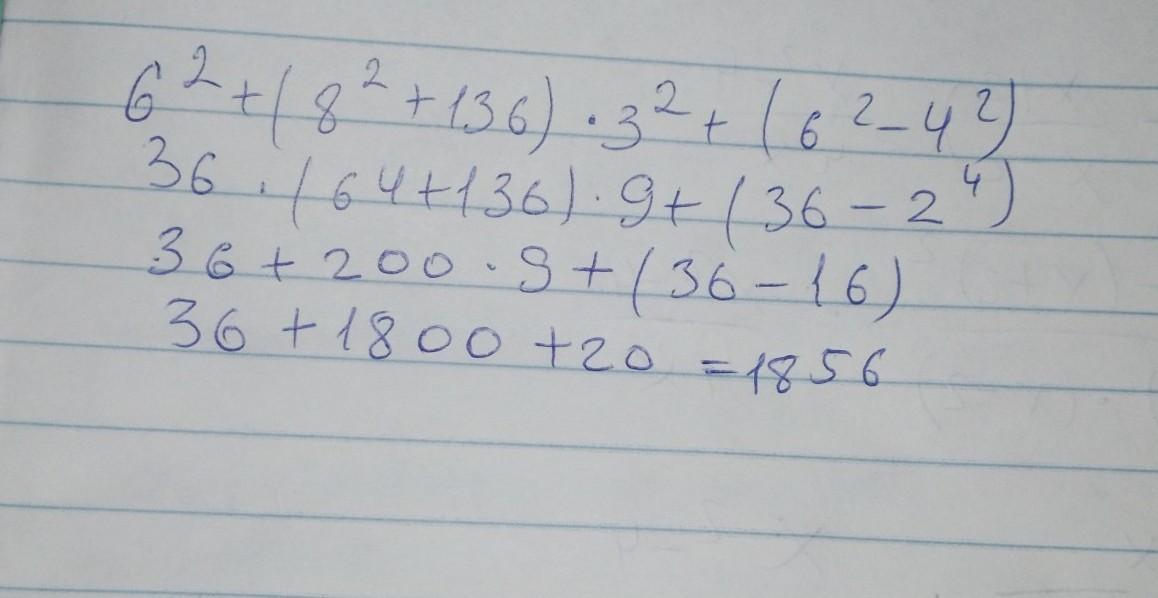 6² + (8² + 136) · 3² + (6² - 4²)
36 · (64 + 136) · 9 + (36 - 2⁴)
36 + 200 · 9 + (36 - 16)
36 + 1800 + 20 = 1856